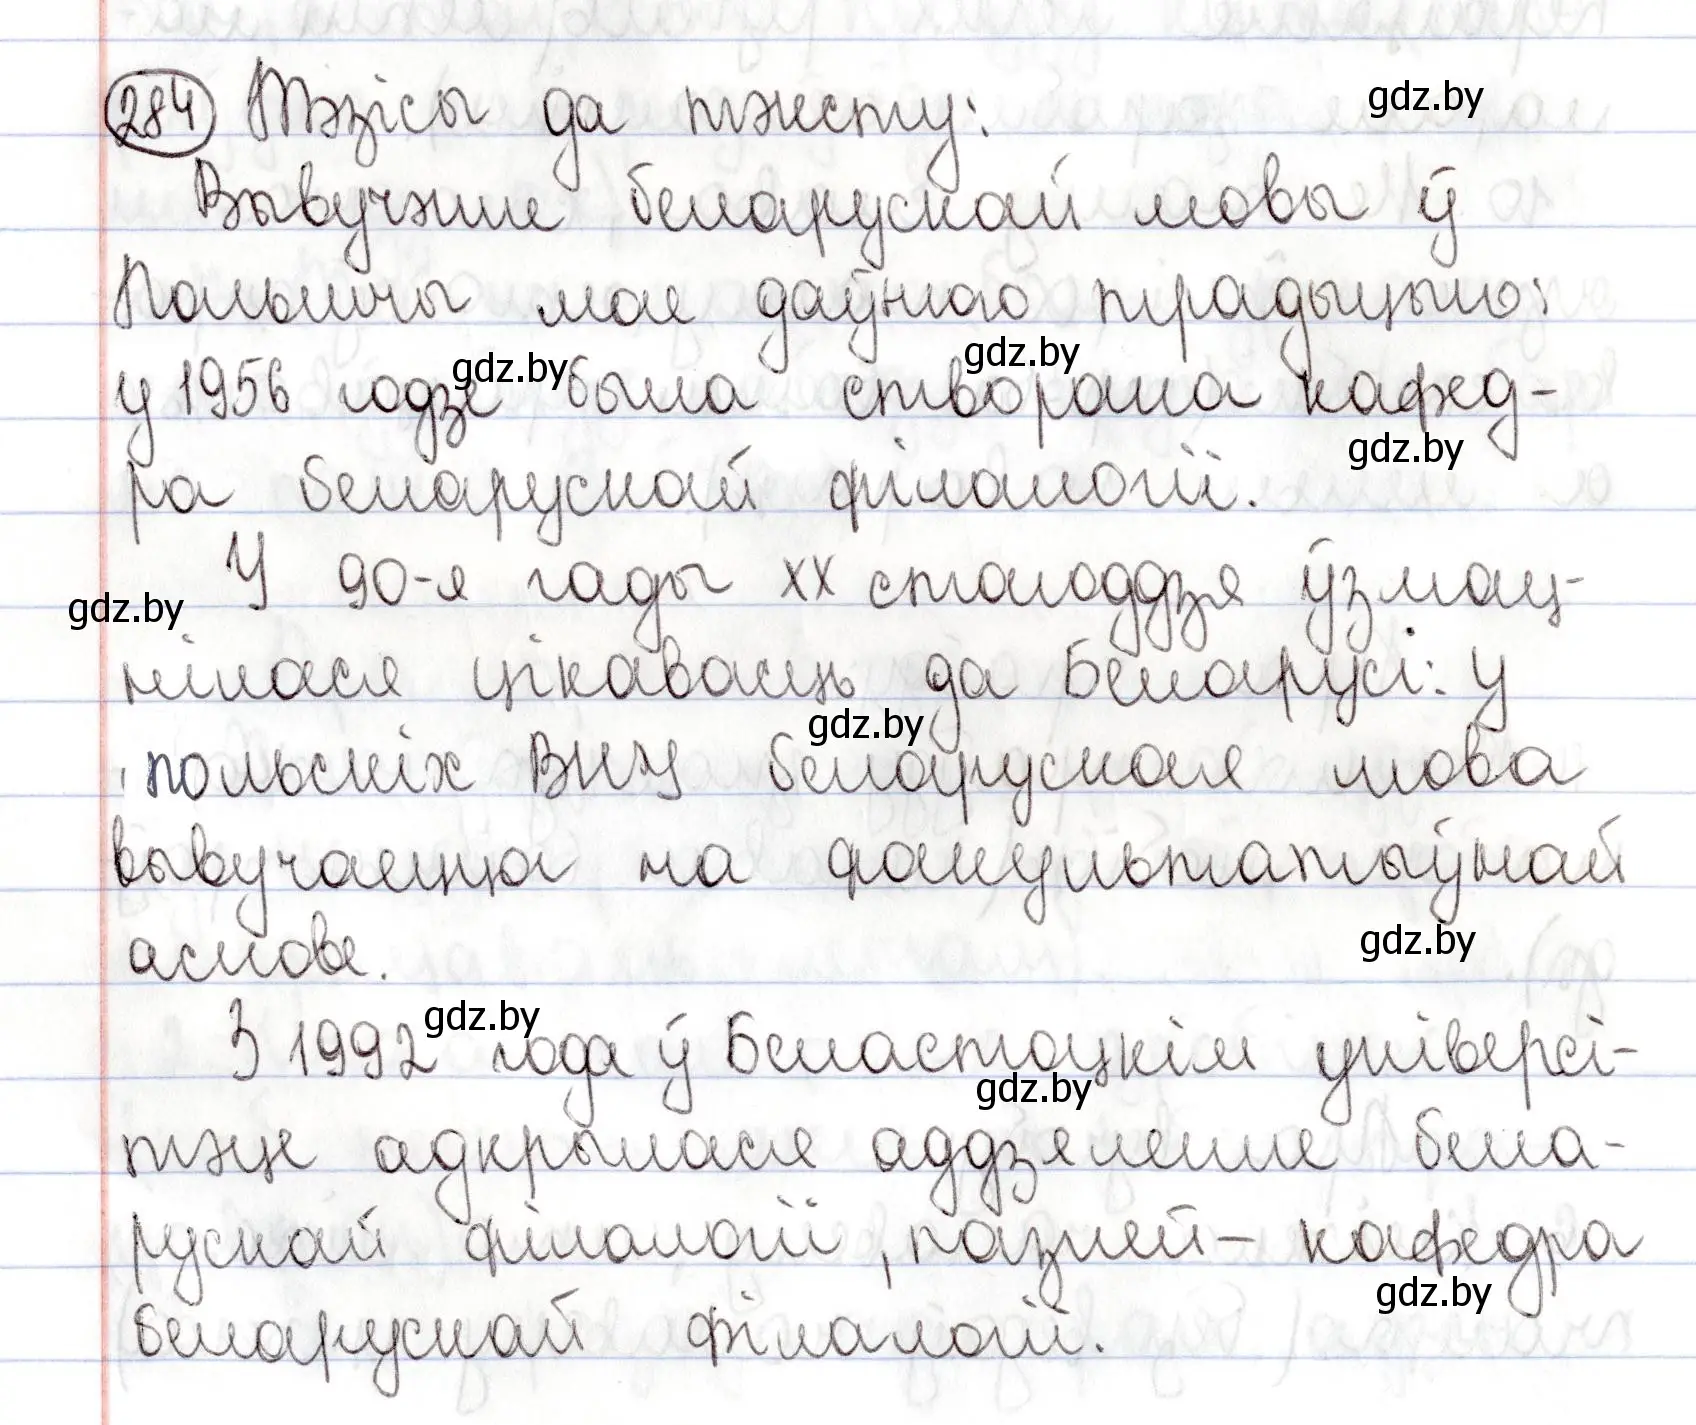 284 Тэзісы да тэксту: gdz.by
Вывучэнне беларускай мовы ў
Польшчы мае даўнюю традыцыю:
gdz.by gdz.by
у 1956 годзе была створана кафед-
gdz.by
ра беларускай філалогіі.
У 90-я гады XX стагоддзя ўзмац-
gdz.by
нілася цікавасць да Беларусі: у
gdz.by
польскіх ВНУ беларуская мова
вывучаецца на факультатыўнай
аснове. gdz.by
З 1992 года ў Беластоцкім універсі-
gdz.by gdz.by
тэце адкрылася аддзяленне бела-
рускай філалогіі, пазней – кафедра
gdz.by
беларускай філалогіі.